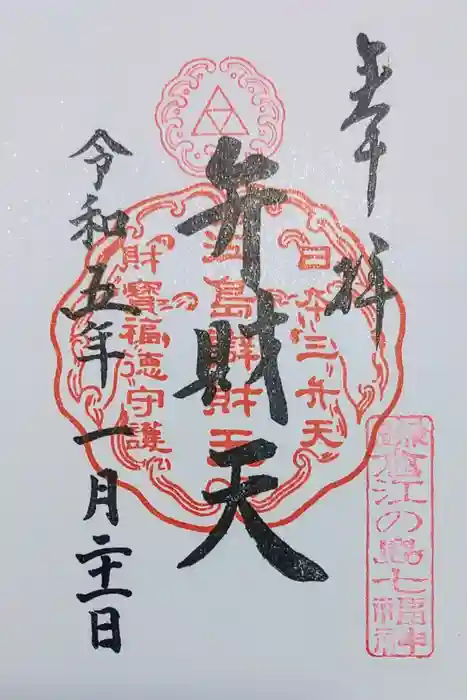 奉拝
日本三弁天
弁財天
江島辯財天
財寳福徳守護
令和五年一月二十一日
鎌倉江の島七福神